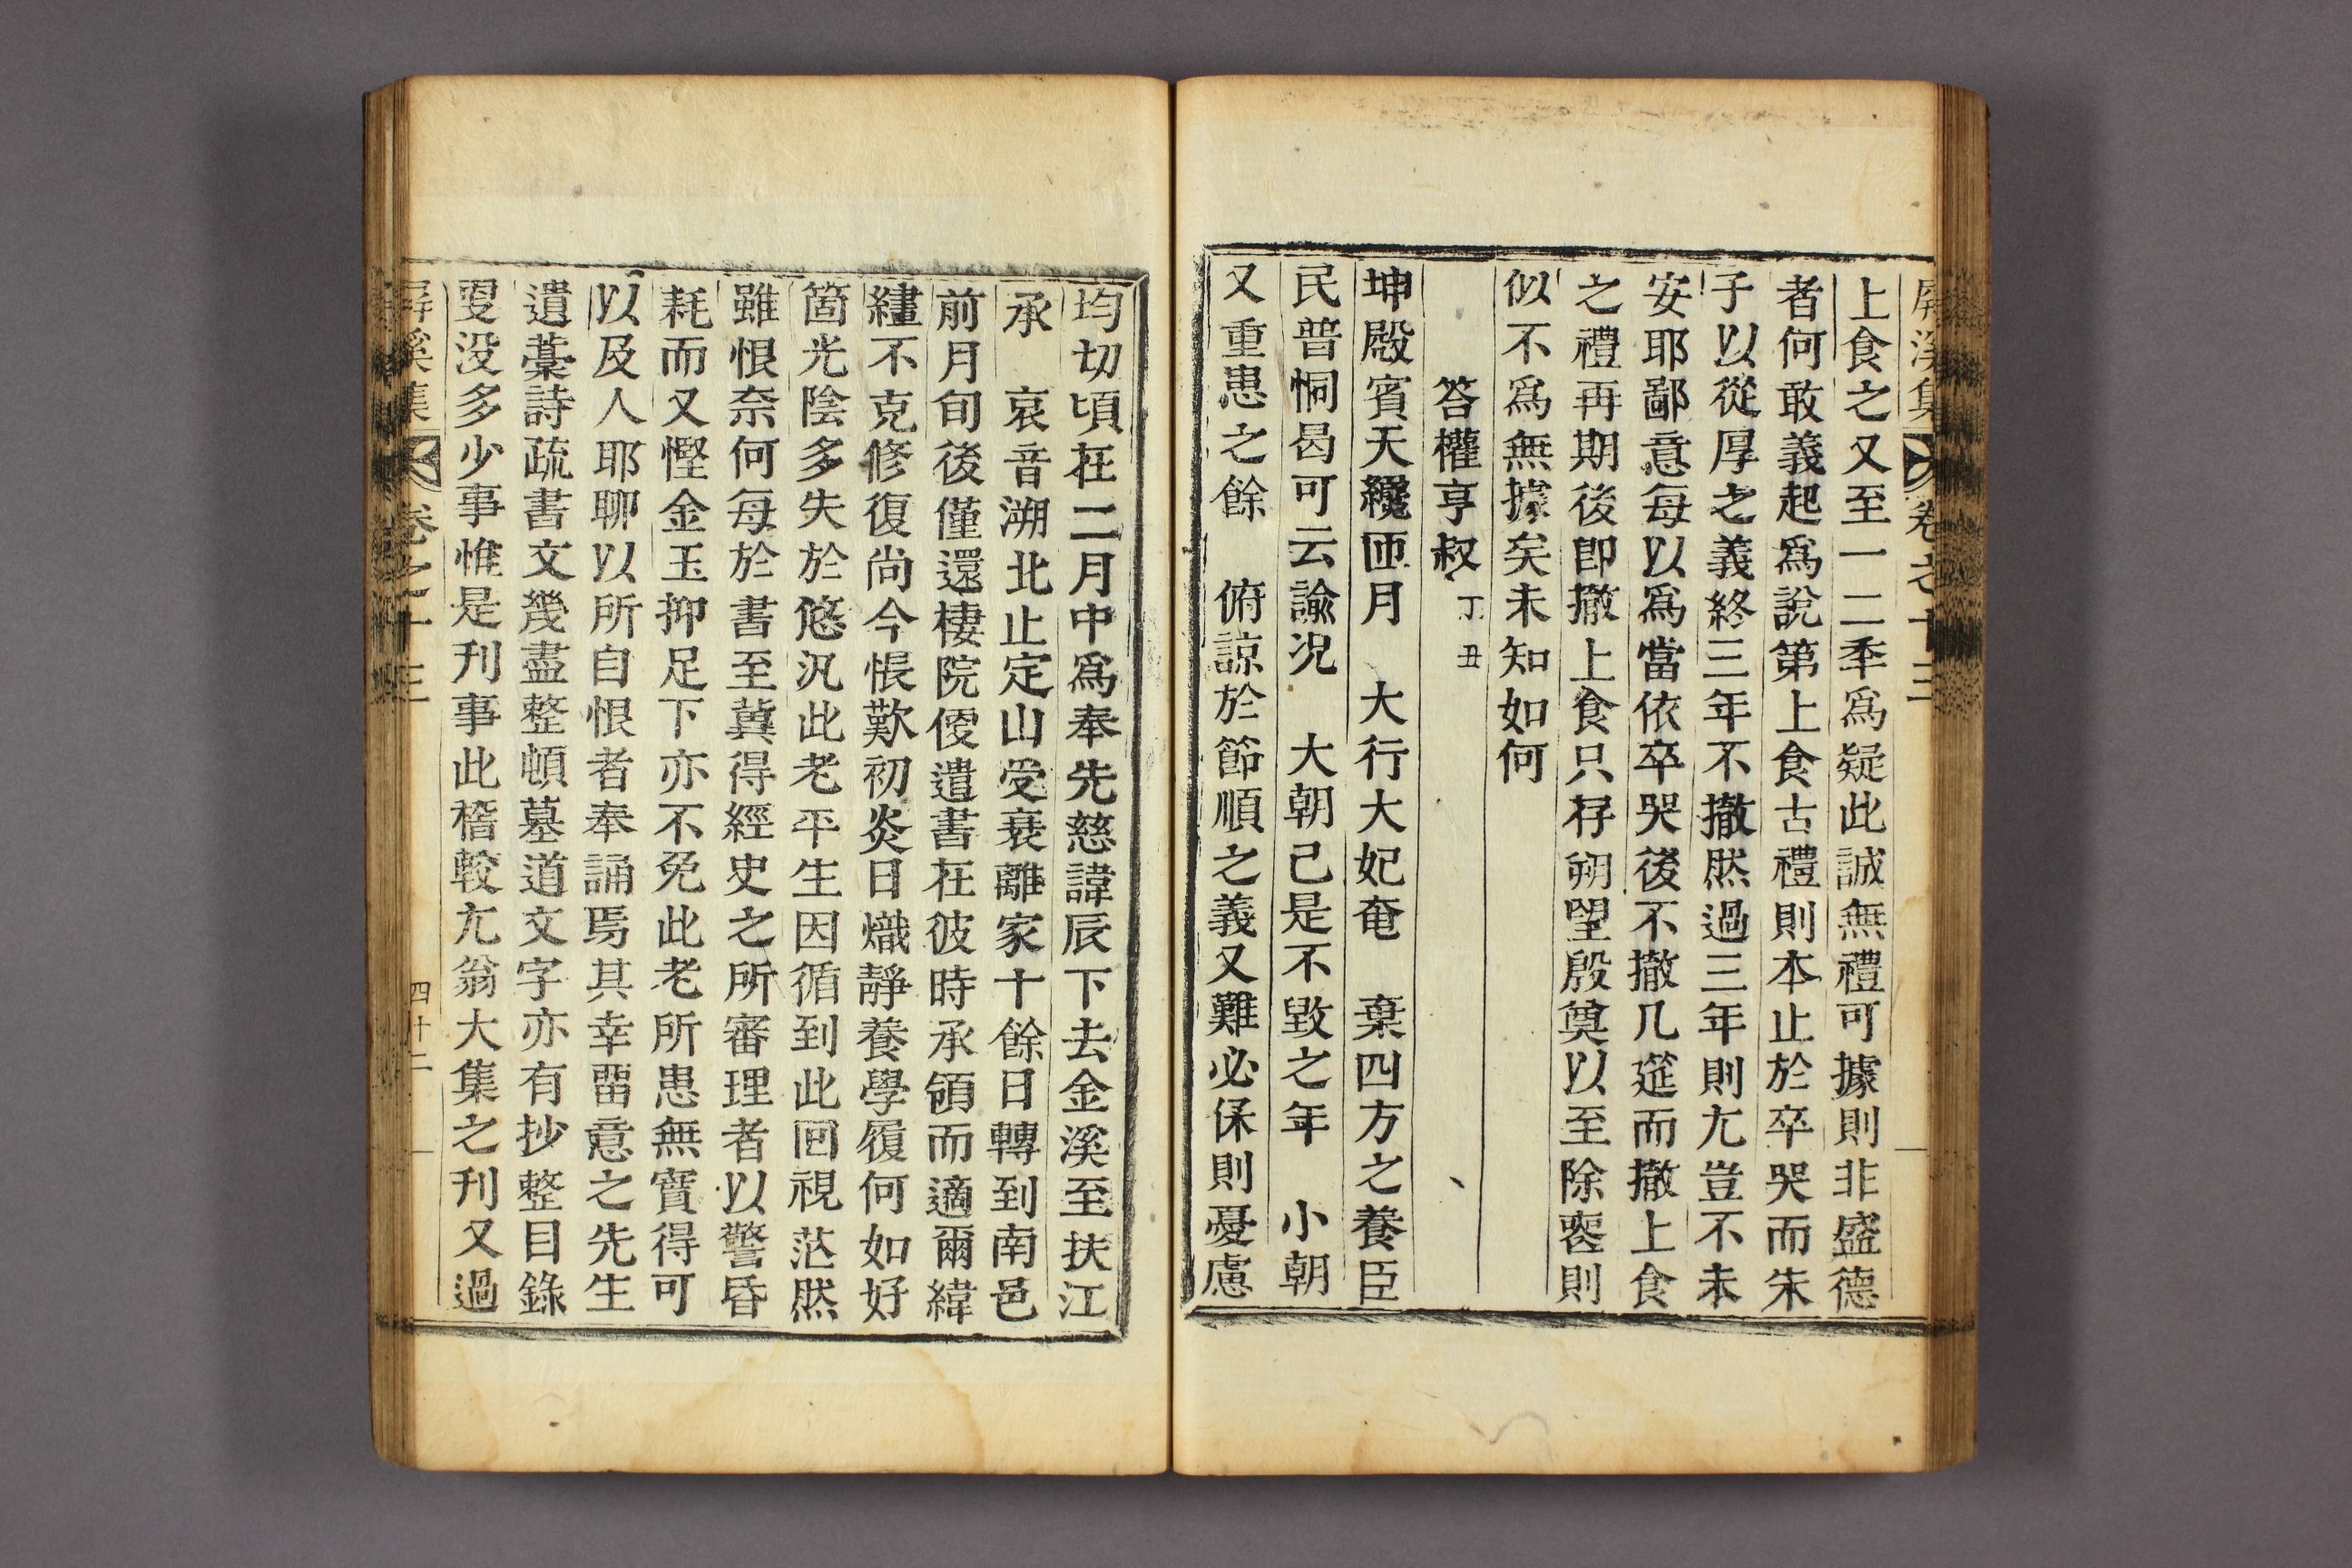 屏溪集 卷之十三
上食之又至一二年爲疑此誠無禮可據則非盛德
者何敢義起爲說第上食古禮則本止於卒哭而朱
子以從厚之義終三年不撤然過三年則尤豈不未
安耶鄙意每以爲當依卒哭後不撤几筵而撤上食
之禮再期後即撤上食只存朔望殷奠以至除喪則
似不爲無據矣未知如何
答權亨叔 丁丑
坤殿賓天纔匝月 大行大妃奄 棄四方之養臣
民普恫曷可云諭况 大朝已是不毀之年 小朝
又重患之餘 俯諒於節順之義又難必保則憂慮
均切頃在二月中爲奉先慈諱辰下去金溪至扶江
承 哀音溯北止定山受衰離家十餘日轉到南邑
前月旬後僅還棲院便遣書在彼時承領而適爾緯
繣不克修復尚今悵歎初炎日熾靜養學履何如好
箇光陰多失於悠汎此老平生因循到此回視茫然
雖恨奈何每於書至冀得經史之所審理者以警昏
耗而又慳金玉抑足下亦不免此老所患無寶得可
以及人耶聊以所自恨者奉誦焉其幸畱意之先生
遺藁詩疏書文幾盡整頓墓道文字亦有抄整目錄
叟没多少事惟是刋事此稽較尤翁大集之刋又過
屏溪集 卷之十三 四十二